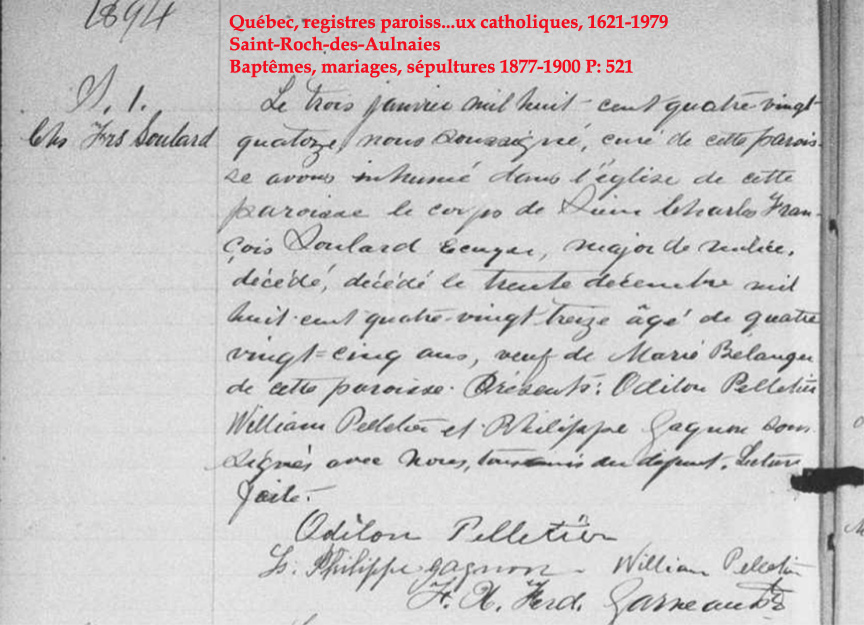 1894
Québec, registres paroiss...ux catholiques, 1621-1979
Saint-Roch-des-Aulnaies
Baptêmes, mariages, sépultures 1877-1900 P: 521
S. 1.
Chs Frs Soulard
Le trois janvier mil huit-cent quatre-vingt
quatorze, nous soussigné, curé de cette parois-
se avons inhumé dans l'église de cette
paroisse le corps de Sieur Charles Fran-
çois Soulard Ecuyer, major de milice,
décédé, décédé le trente décembre mil
huit-cent quatre-vingt treize âgé de quatre
vingt=cinq ans, veuf de Marie Bélanger
de cette paroisse. Présents: Odilon Pelletier
William Pelletier et Philippe Gagnon sous-
signés avec nous, tous amis du défunt. Lecture
faite.
Odilon Pelletier
Ls. Philippe gagnon William Pelletier
F. X. Ferd. Garneau Ptr